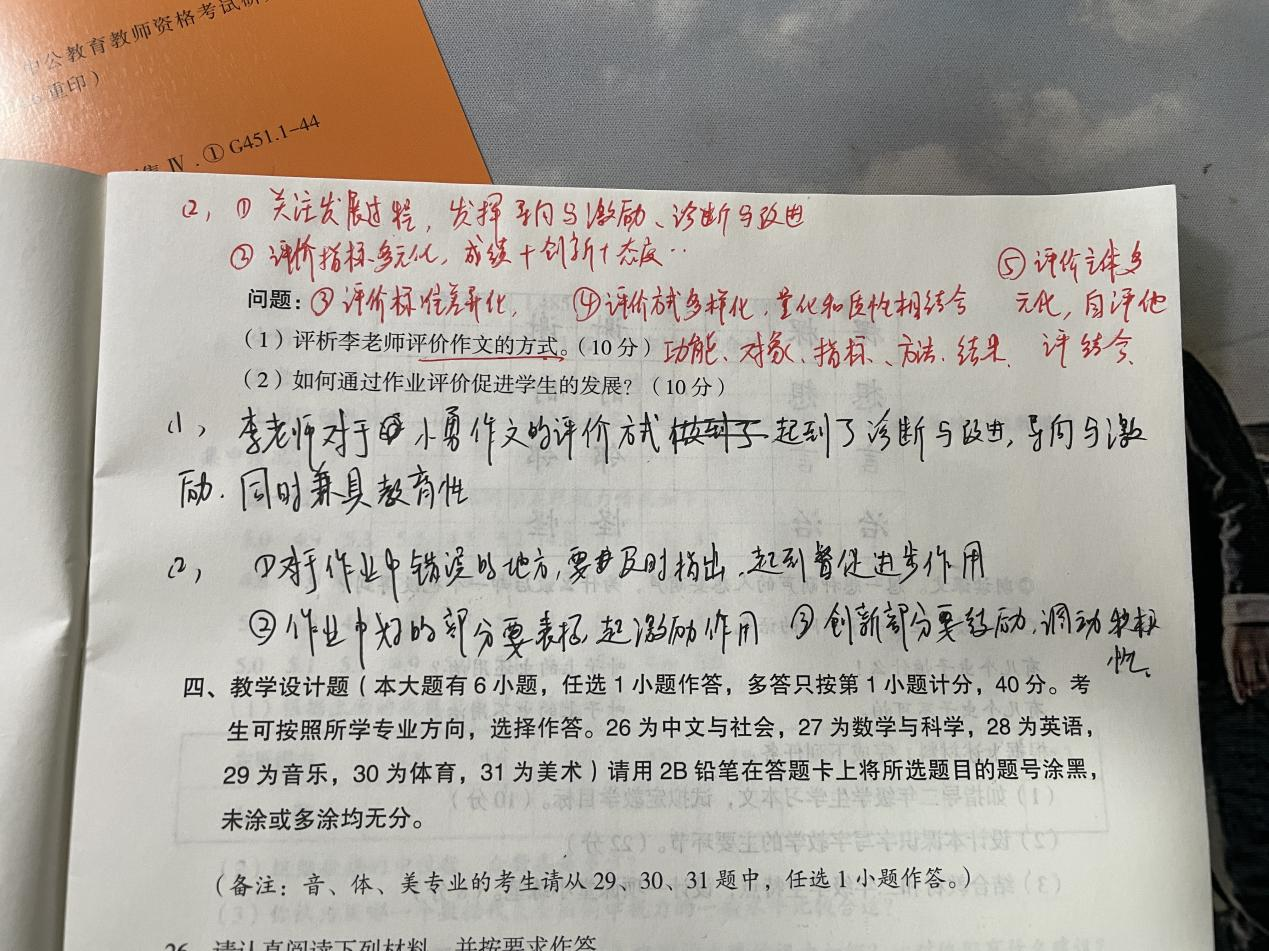 中公教育教师资格考试研
重印）
集 Ⅳ . ① G451.1-44
(2, ① 关注发展过程，发挥导向与激励、诊断与改进
② 评价指标多元化，成绩+创新+态度··
⑤ 评价主体多
问题：③ 评价标准差异化， ④ 评价方式多样化，量化和质性相结合
元化，自评他
（1）评析李老师评价作文的方式。（10 分） 功能、对象、指标、方法、结果
评结合
（2）如何通过作业评价促进学生的发展？（10 分）
(1, 李老师对于小勇作文的评价方式做到了起到了诊断与改进，导向与激
励．同时兼具教育性
(2, ①对于作业中错误的地方，要及时指出、起到督促进步作用
②作业中好的部分要表扬，起激励作用 ③创新部分要鼓励，调动积极
性。
四、教学设计题（本大题有 6 小题，任选 1 小题作答，多答只按第 1 小题计分，40 分。考
生可按照所学专业方向，选择作答。26 为中文与社会，27 为数学与科学，28 为英语，
29 为音乐，30 为体育，31 为美术）请用 2B 铅笔在答题卡上将所选题目的题号涂黑，
未涂或多涂均无分。
（备注：音、体、美专业的考生请从 29、30、31 题中，任选 1 小题作答。）
26. 请认真阅读下列材料，并按要求作答